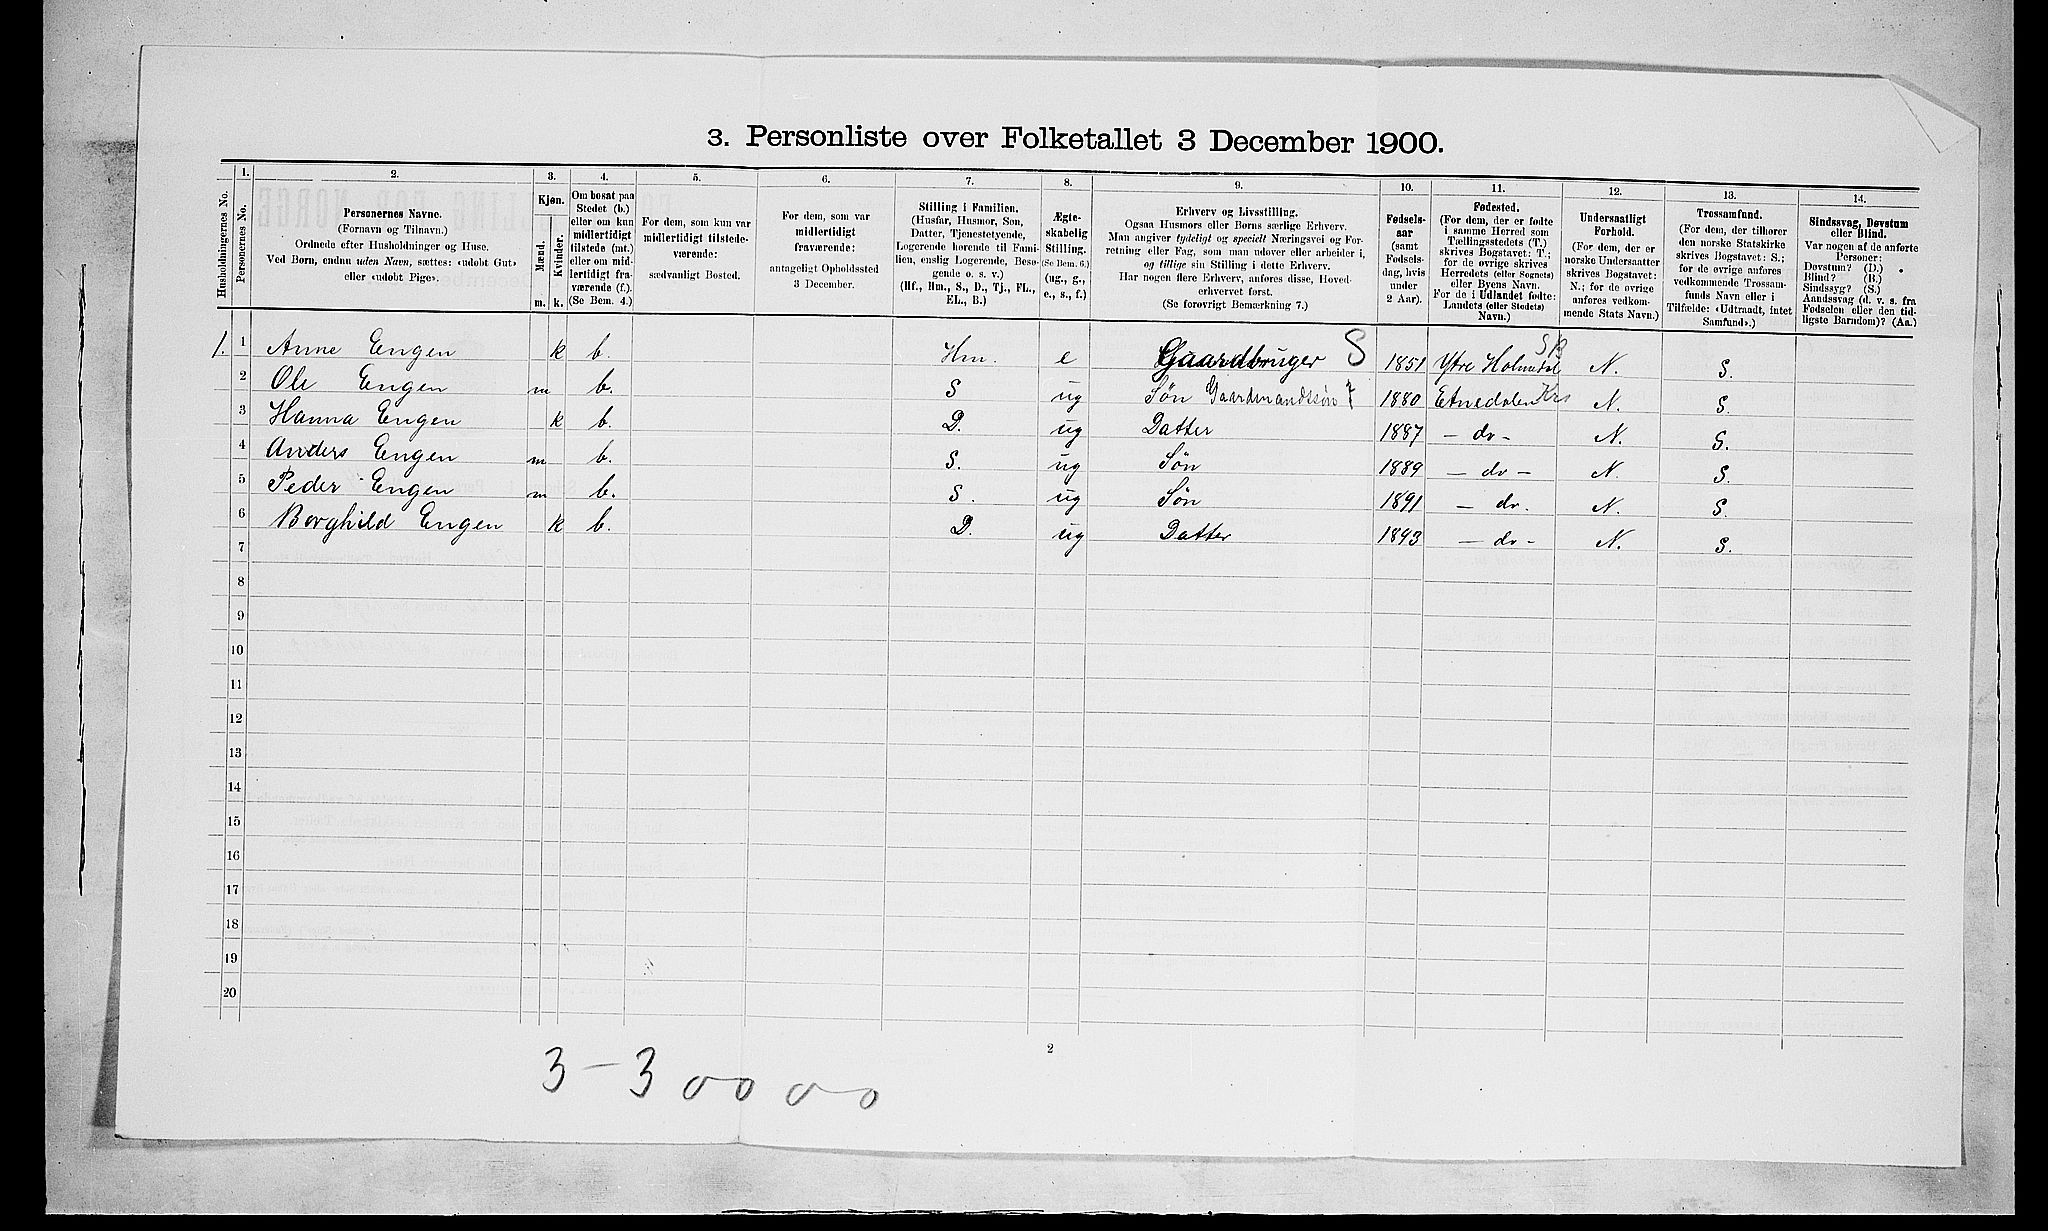 3. Personliste over Folketallet 3 December 1900.
Husholdningernes No.
1. Personernes No.
2. Personernes Navne. (Fornavn og Tilnavn.) Ordnede efter Husholdninger og Huse. Ved Børn, endnu uden Navn, sættes: «udøbt Gut» eller «udøbt Pige».
3. Kjøn. Mænd. m. Kvinder. k.
4. Om bosat paa Stedet (b.) eller om kun midlertidigt tilstede (mt.) eller om midlertidigt fraværende (f.). (Se Bem. 4.)
5. For dem, som kun var midlertidigt tilstedeværende: sædvanligt Bosted.
6. For dem, som var midlertidigt fraværende: antageligt Opholdssted 3 December.
7. Stilling i Familien. (Husfar, Husmor, Søn, Datter, Tjenestetyende, Logerende hørende til Familien, enslig Logerende, Besøgende o. s. v.) (Hf., Hm., S., D., Tj., FL., EL., B.)
8. Ægteskabelig Stilling. (Se Bem. 6.) (ug., g., e., s., f.)
9. Erhverv og Livsstilling. Ogsaa Husmors eller Børns særlige Erhverv. Man angiver tydeligt og specielt Næringsvei og Forretning eller Fag, som man udøver eller arbeider i, og tillige sin Stilling i dette Erhverv. Har nogen flere Erhverv, anføres disse, Hovederhvervet først. (Se forøvrigt Bemærkning 7.)
10. Fødselsaar (samt Fødselsdag, hvis under 2 Aar).
11. Fødested. (For dem, der er fødte i samme Herred som Tællingsstedets (T.) skrives Bogstavet: T.; for de øvrige skrives Herredets (eller Sognets) eller Byens Navn. For de i Udlandet fødte: Landets (eller Stedets) Navn.)
12. Undersaatligt Forhold. (For dem, der er norske Undersaatter skrives Bogstavet: N.; for de øvrige anføres vedkommende Stats Navn.)
13. Trossamfund. (For dem, der tilhører den norske Statskirke skrives Bogstavet: S.; for de øvrige anføres vedkommende Trossamfunds Navn eller i Tilfælde: «Udtraadt, intet Samfund».)
14. Sindssvag, Døvstum eller Blind. Var nogen af de anførte Personer: Døvstum? (D.) Blind? (B.) Sindssyg? (S.) Aandssvag (d. v. s. fra Fødselen eller den tidligste Barndom)? (Aa.)
1. 1 Anne Engen k b. Hm. e Gaardbruger S 1851 Ytre Holmedal SB N. S.
2 Ole Engen m b. S ug Søn Gaardmandssøn 7 1880 Etnedalen Krs N. S.
3 Hanna Engen k b. D. ug Datter 1887 – do – N. S.
4 Anders Engen m b. S. ug Søn 1889 – do – N. S.
5 Peder Engen m b. S. ug Søn 1891 – do. N. S.
6 Borghild Engen k b. D. ug Datter 1893 – do – N. S.
7
8
9
10
11
12
13
14
15
16
17
18
19
20
2
3 – 3 00 00